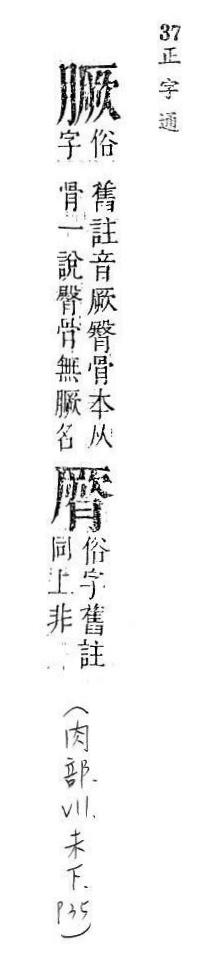 37 正字通
⿰月厥
俗
字
舊註音厥臀骨本从
骨一說臀骨無⿰月厥名
俗字舊註
同上非
(肉部.VII.未下.p35)